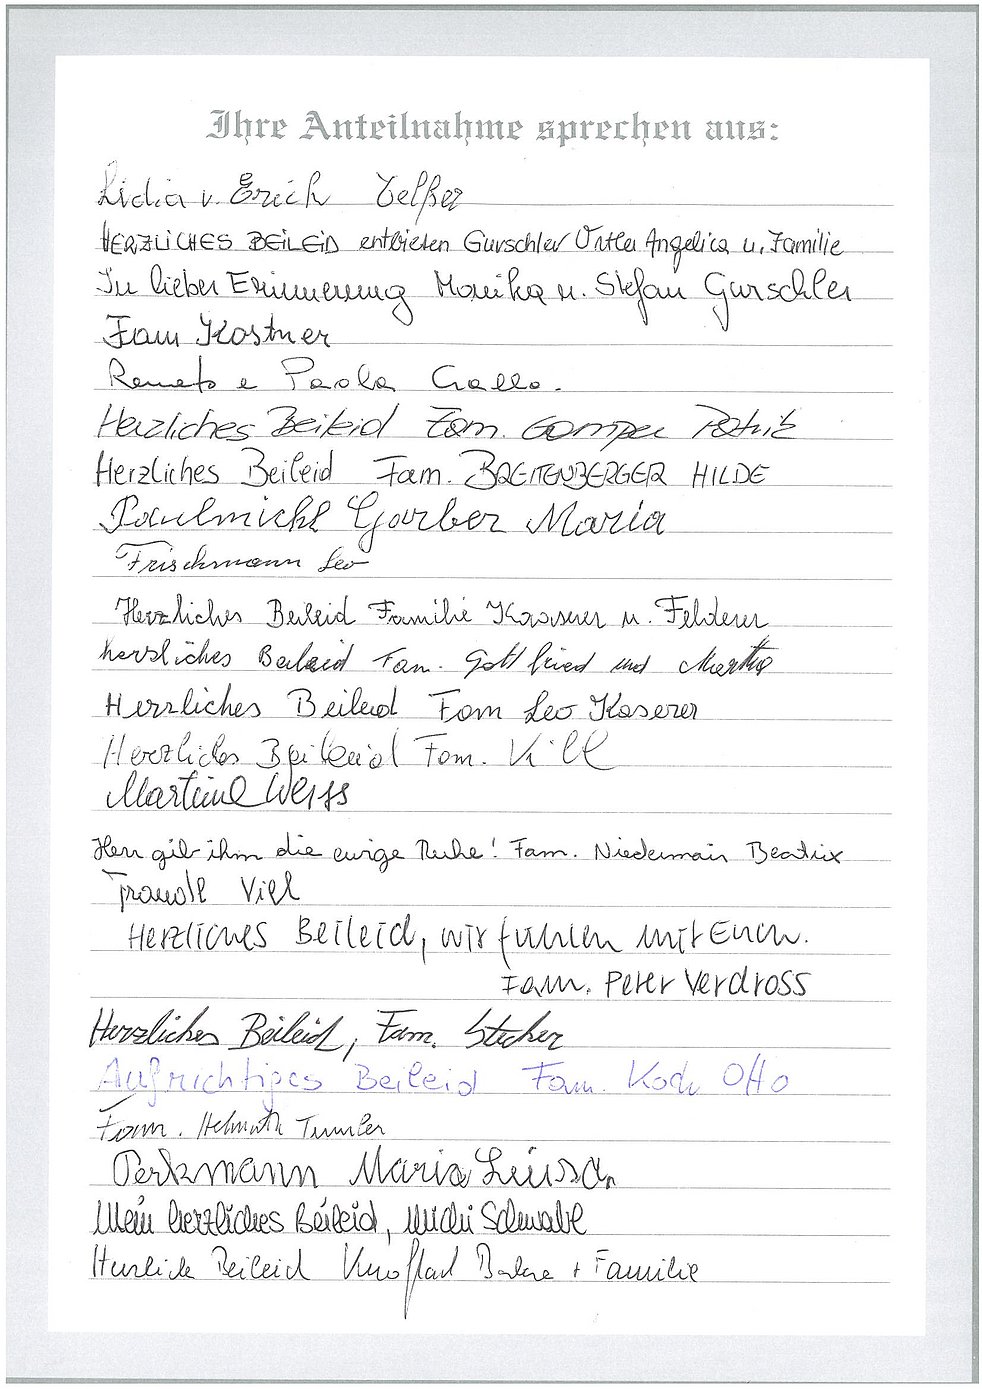 Ihre Anteilnahme sprechen aus:
Lidia u. Erich Telßer
HERZLICHES BEILEID entbieten Gurschler Ortler Angelica u. Familie
In lieber Erinnerung Monika u. Stefan Gurschler
Fam Kostner
Renato e Paola Gallo.
Herzliches Beileid Fam. Gamper Patrik
Herzliches Beileid Fam. BREITENBERGER HILDE
Paulmichl Garber Maria
Frischmann Leo
Herzliches Beileid Familie Kaserer u. Felderer
herzliches Beileid Fam. Gottfried und Martha
Herzliches Beileid Fam Leo Kaserer
Herzliches Beileid Fam. Vill
Martina Weiss
Herr gib ihm die ewige Ruhe! Fam. Niedermair Beatrix
Traudl Vill
Herzliches Beileid, wir fühlen mit Euch.
Fam. Peter Verdross
Herzliches Beileid, Fam. Stecher
Aufrichtiges Beileid Fam. Koch Otto
Fam. Helmuth Tumler
Perkmann Maria Luisa
Mein herzliches Beileid, Michi Schwabl
Herzlich Beileid + Familie